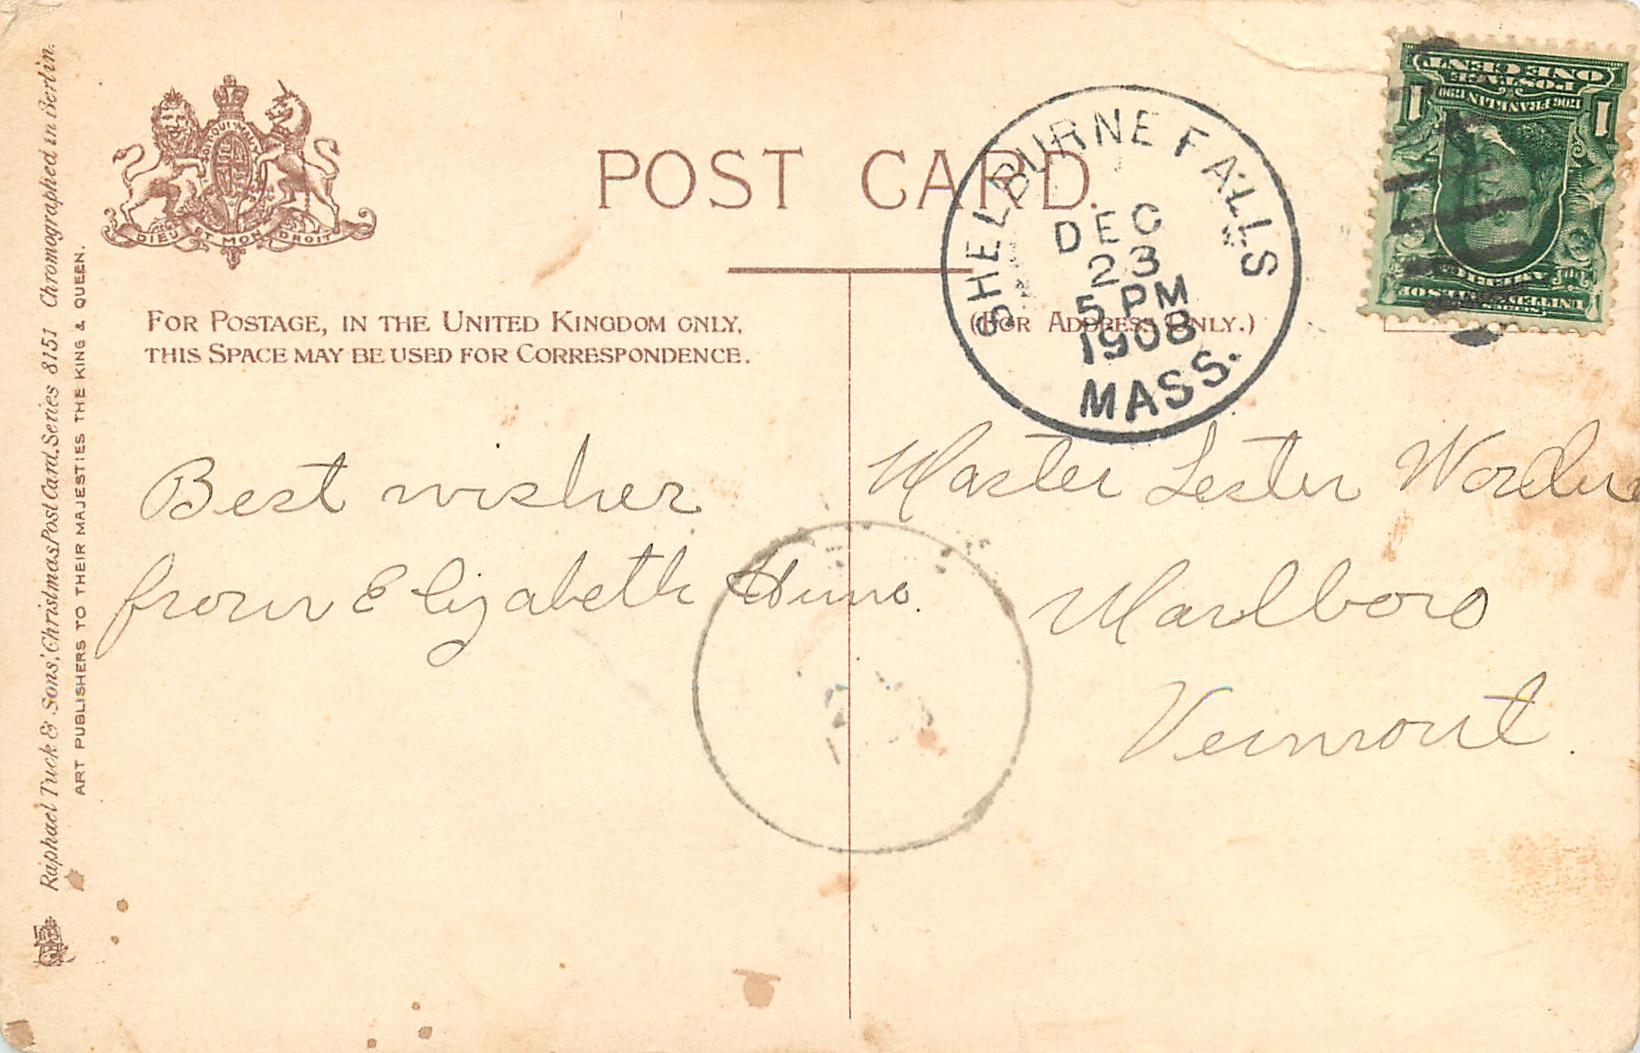 POST CARD.
DIEU ET MON DROIT
FOR POSTAGE, IN THE UNITED KINGDOM ONLY,
THIS SPACE MAY BE USED FOR CORRESPONDENCE.
(FOR ADDRESS ONLY.)
SHELBURNE FALLS
DEC
23
5 PM
1908
MASS.
ONE CENT
POSTAGE
1706 FRANKLIN 1790
1 1
UNITED STATES OF
AMERICA
Best wishes
from Elizabeth
Master Lester
Marlboro
Vermont.
Raphael Tuck & Sons' Christmas Post Card Series 8151 Chromographed in Berlin.
ART PUBLISHERS TO THEIR MAJESTIES THE KING & QUEEN.